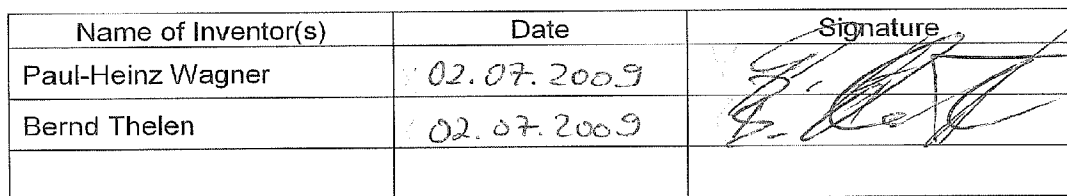 Name of Inventor(s) Date Signature
Paul-Heinz Wagner 02.07.2009
Bernd Thelen 02.07.2009